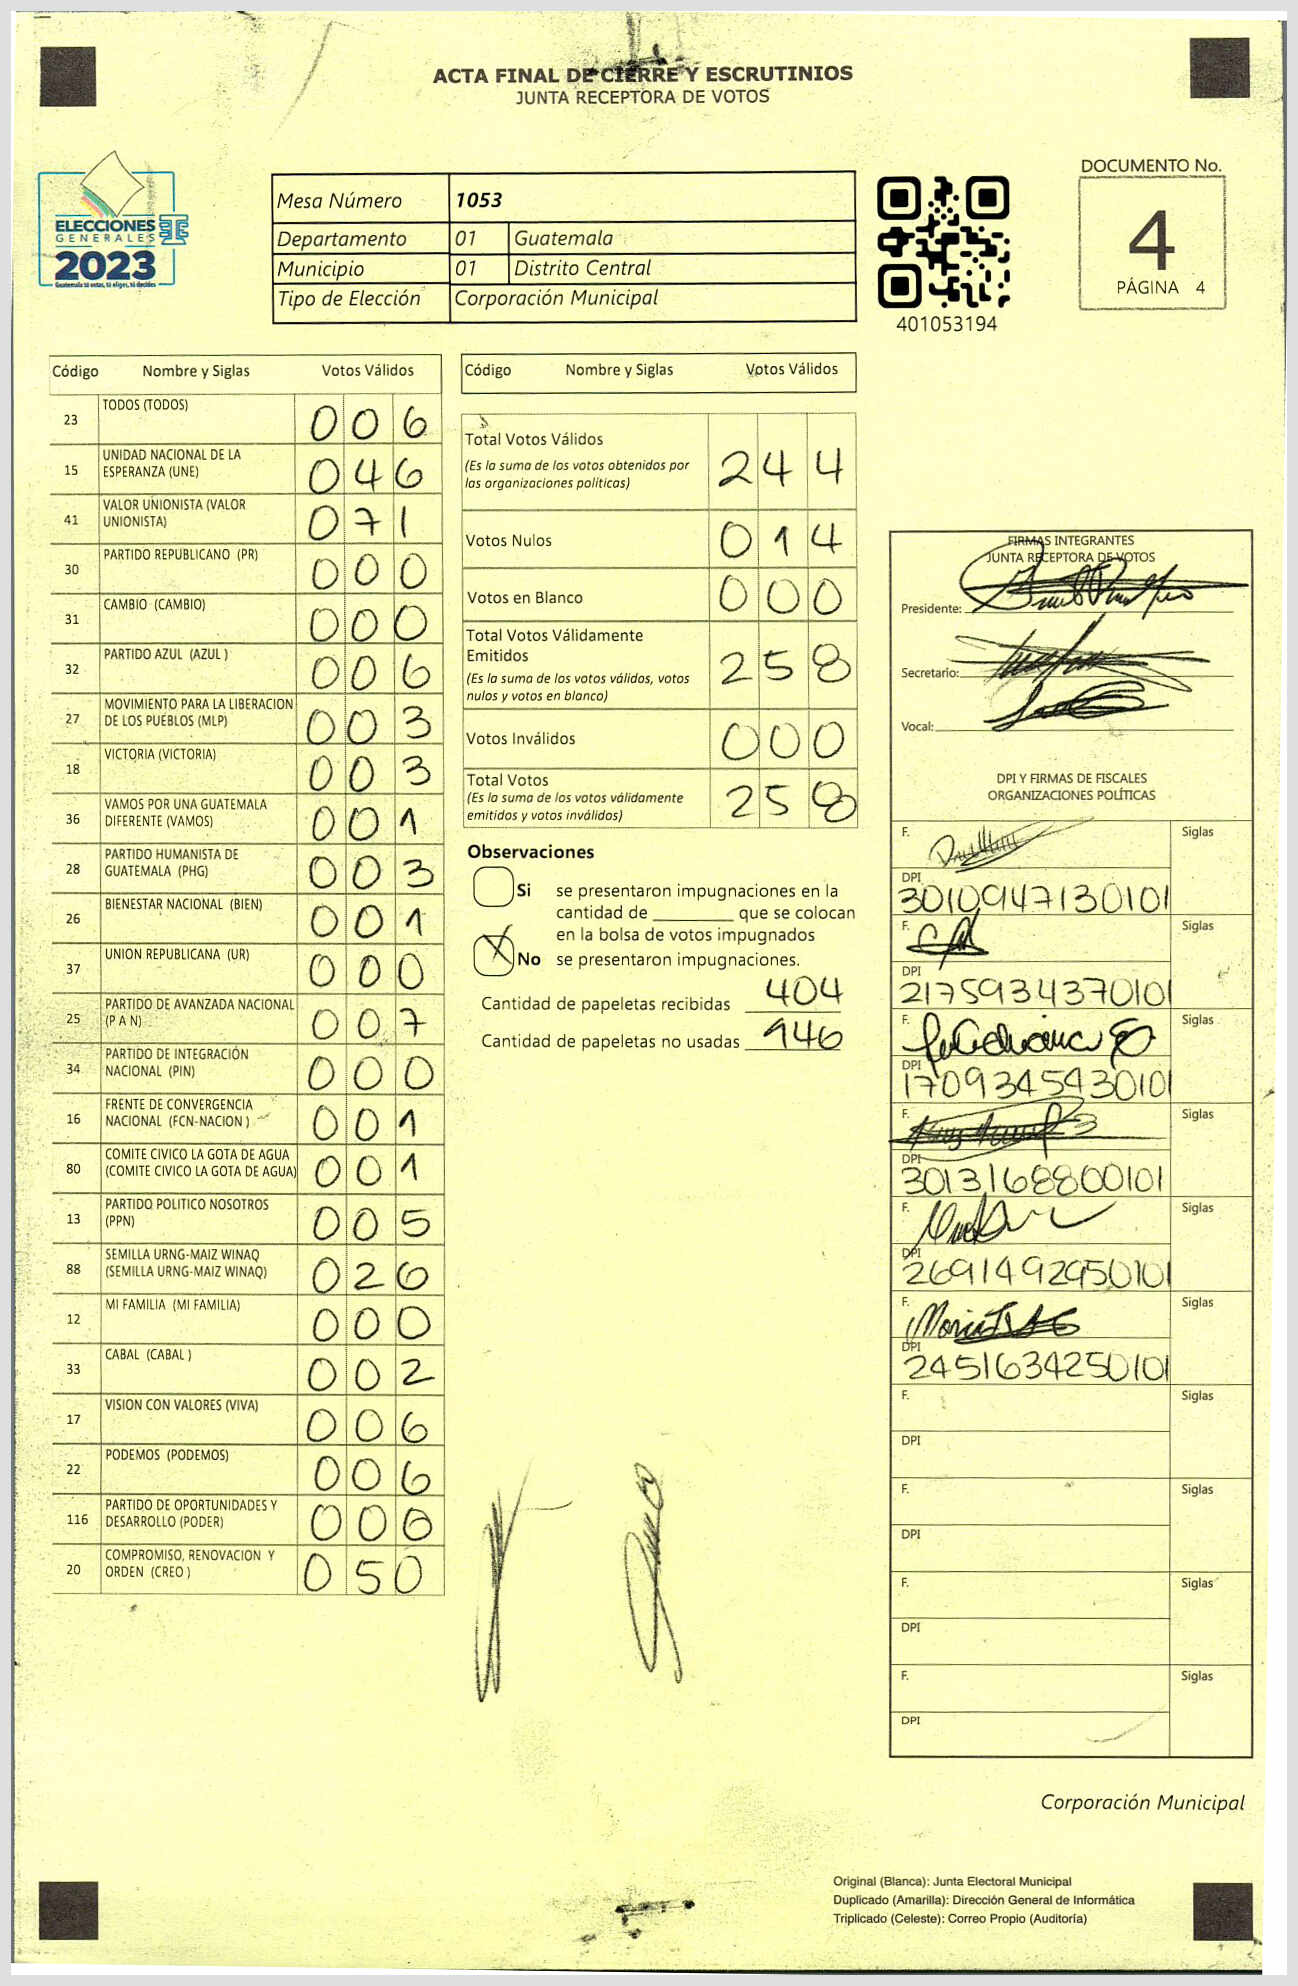 ACTA FINAL DE CIERRE Y ESCRUTINIOS
JUNTA RECEPTORA DE VOTOS
ELECCIONES
GENERALES
2023
Guatemala tú votas, tú eliges, tú decides
Mesa Número 1053
Departamento 01 Guatemala
Municipio 01 Distrito Central
Tipo de Elección Corporación Municipal
401053194
DOCUMENTO No.
4
PÁGINA 4
Código Nombre y Siglas Votos Válidos
23 TODOS (TODOS) 0 0 6
15 UNIDAD NACIONAL DE LA ESPERANZA (UNE) 0 4 6
41 VALOR UNIONISTA (VALOR UNIONISTA) 0 7 1
30 PARTIDO REPUBLICANO (PR) 0 0 0
31 CAMBIO (CAMBIO) 0 0 0
32 PARTIDO AZUL (AZUL ) 0 0 6
27 MOVIMIENTO PARA LA LIBERACION DE LOS PUEBLOS (MLP) 0 0 3
18 VICTORIA (VICTORIA) 0 0 3
36 VAMOS POR UNA GUATEMALA DIFERENTE (VAMOS) 0 0 1
28 PARTIDO HUMANISTA DE GUATEMALA (PHG) 0 0 3
26 BIENESTAR NACIONAL (BIEN) 0 0 1
37 UNION REPUBLICANA (UR) 0 0 0
25 PARTIDO DE AVANZADA NACIONAL (P A N) 0 0 7
34 PARTIDO DE INTEGRACIÓN NACIONAL (PIN) 0 0 0
16 FRENTE DE CONVERGENCIA NACIONAL (FCN-NACION ) 0 0 1
80 COMITE CIVICO LA GOTA DE AGUA (COMITE CIVICO LA GOTA DE AGUA) 0 0 1
13 PARTIDO POLITICO NOSOTROS (PPN) 0 0 5
88 SEMILLA URNG-MAIZ WINAQ (SEMILLA URNG-MAIZ WINAQ) 0 2 6
12 MI FAMILIA (MI FAMILIA) 0 0 0
33 CABAL (CABAL ) 0 0 2
17 VISION CON VALORES (VIVA) 0 0 6
22 PODEMOS (PODEMOS) 0 0 6
116 PARTIDO DE OPORTUNIDADES Y DESARROLLO (PODER) 0 0
20 COMPROMISO, RENOVACION Y ORDEN (CREO ) 0 5 0
Código Nombre y Siglas Votos Válidos
Total Votos Válidos 2 4 4
(Es la suma de los votos obtenidos por
las organizaciones políticas)
Votos Nulos 0 1 4
Votos en Blanco 0 0 0
Total Votos Válidamente
Emitidos 2 5 8
(Es la suma de los votos válidos, votos
nulos y votos en blanco)
Votos Inválidos 0 0 0
Total Votos 2 5 8
(Es la suma de los votos válidamente
emitidos y votos inválidos)
Observaciones
Si se presentaron impugnaciones en la
cantidad de ________ que se colocan
en la bolsa de votos impugnados
X No se presentaron impugnaciones.
Cantidad de papeletas recibidas 404
Cantidad de papeletas no usadas 146
FIRMAS INTEGRANTES
JUNTA RECEPTORA DE VOTOS
Presidente:
Secretario:
Vocal:
DPI Y FIRMAS DE FISCALES
ORGANIZACIONES POLÍTICAS
F. Siglas
DPI
3010947130101
F. Siglas
DPI
2175934370101
F. Siglas
DPI
1709345430101
F. Siglas
DPI
3013168800101
F. Siglas
DPI
2691492950101
F. Siglas
DPI
2451634250101
F. Siglas
DPI
F. Siglas
DPI
F. Siglas
DPI
F. Siglas
DPI
Corporación Municipal
Original (Blanca): Junta Electoral Municipal
Duplicado (Amarilla): Dirección General de Informática
Triplicado (Celeste): Correo Propio (Auditoría)